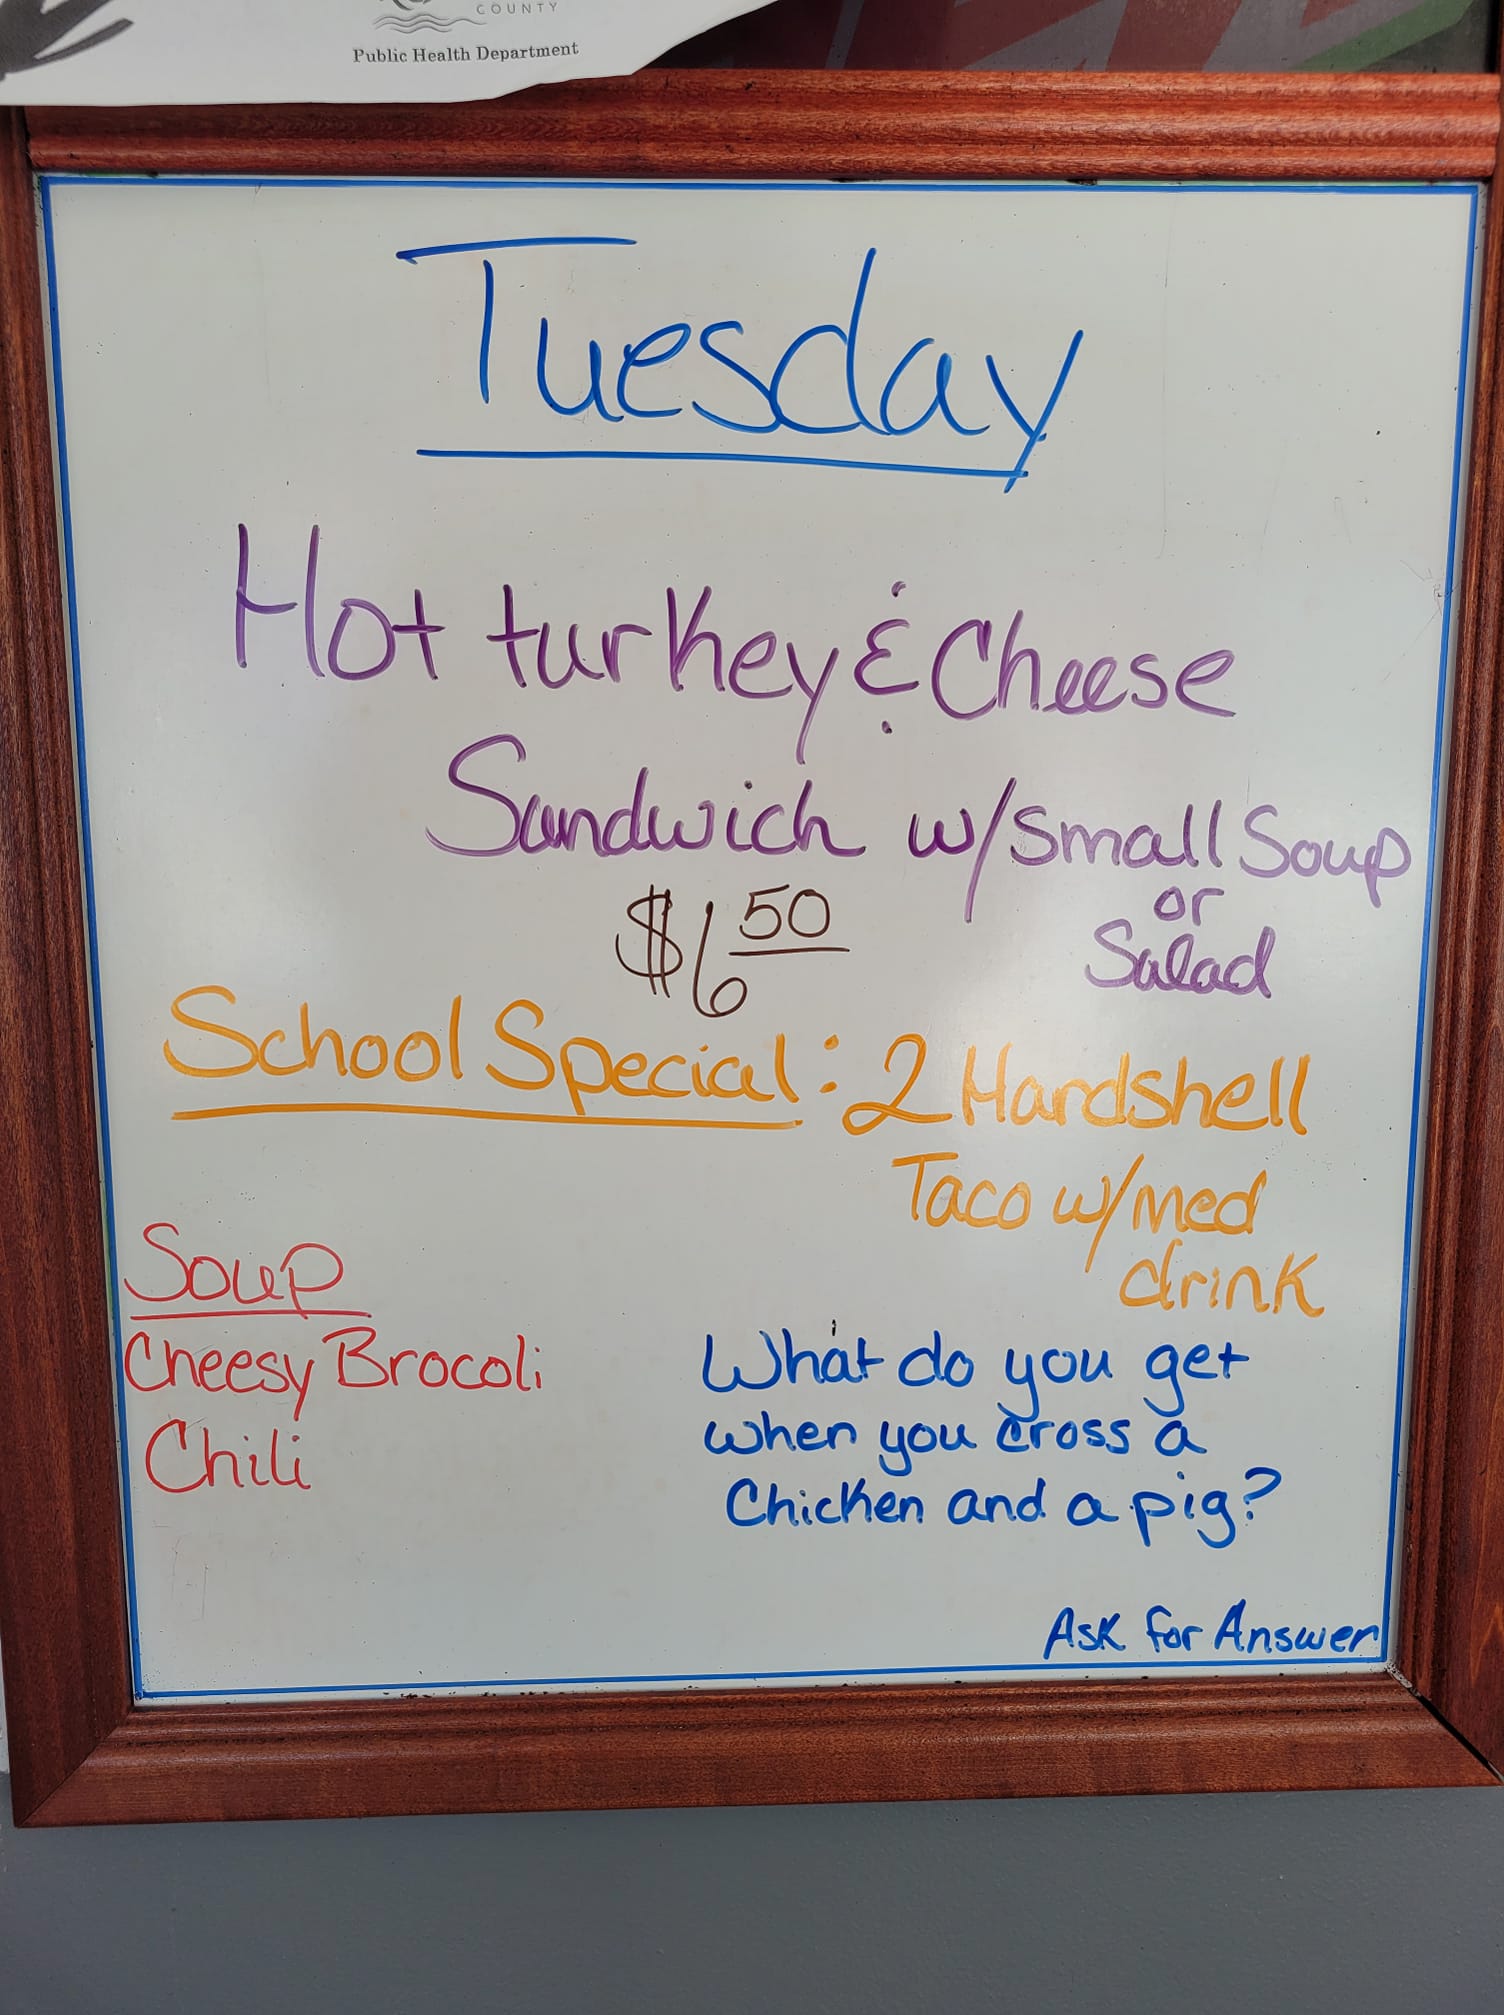 COUNTY
Public Health Department
Tuesday
Hot turkey & Cheese
Sandwich w/small Soup
or
Salad
$6 50
School Special: 2 Hardshell
Taco w/med
drink
Soup
Cheesy Brocoli
Chili
What do you get
when you cross a
Chicken and a pig?
Ask for Answer